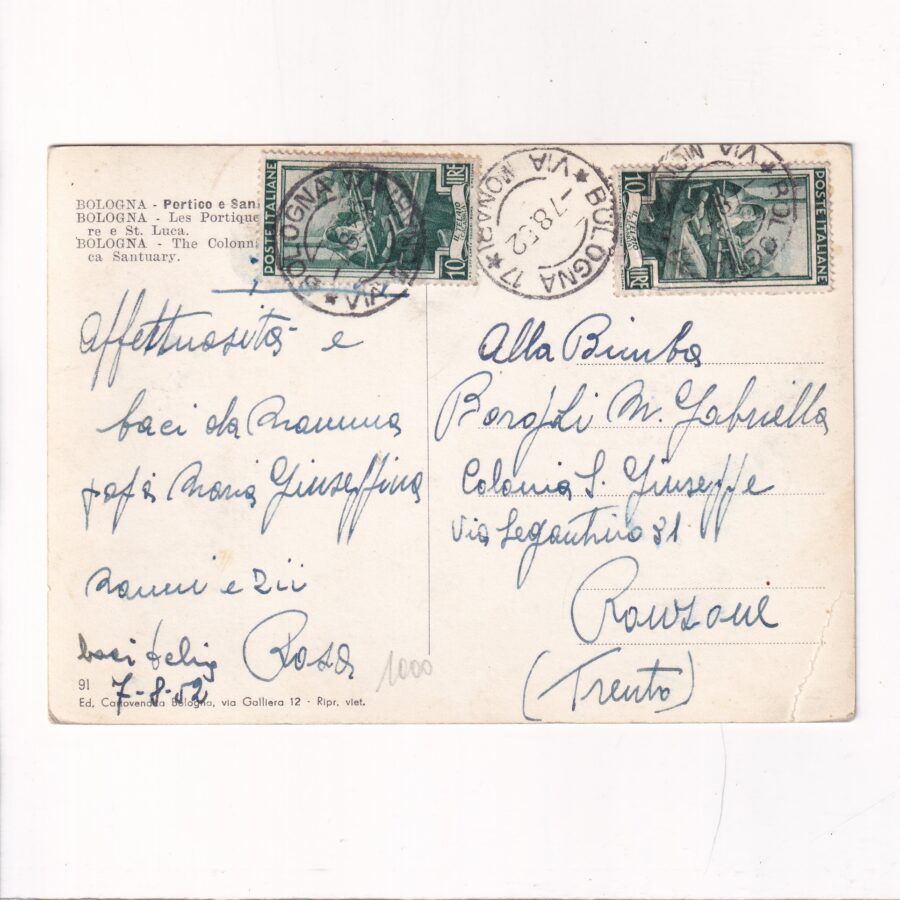 BOLOGNA - Portico e San
BOLOGNA - Les Portique
re e St. Luca.
BOLOGNA - The Colonn
ca Santuary.
POSTE ITALIANE
LIRE
10
IL TELAIO
BOLOGNA
VIA
BOLOGNA 17
VIA MONARI
-7.8.52
10
LIRE
POSTE ITALIANE
BOLOGNA
VIA MO
Affettuosità e
baci da Mamma
papà Maria Giuseppina
Nonni e Zii
baci Rosa
7-8-52
1000
91
Ed. Cartovendita Bologna, via Galliera 12 - Ripr. viet.
Alla Bimba
M. Gabriella
Colonia S. Giuseppe
Via Segantino 31
Ronzone
(Trento)